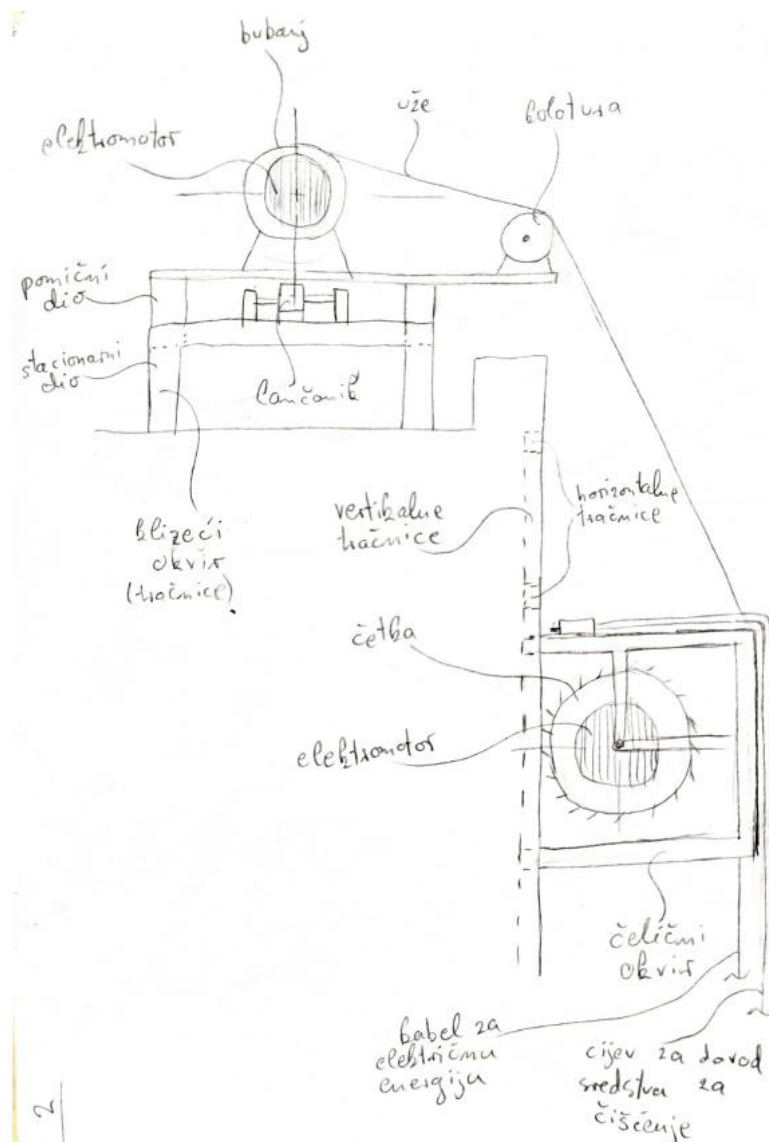 bubanj
uže
koloturа
elektromotor
pomični
dio
stacionarni
dio
lančanik
klizeći
okvir
(tračnice)
vertikalne
tračnice
horizontalne
tračnice
četka
elektromotor
čelični
okvir
kabel za
električnu
energiju
cijev za dovod
sredstva za
čišćenje
2